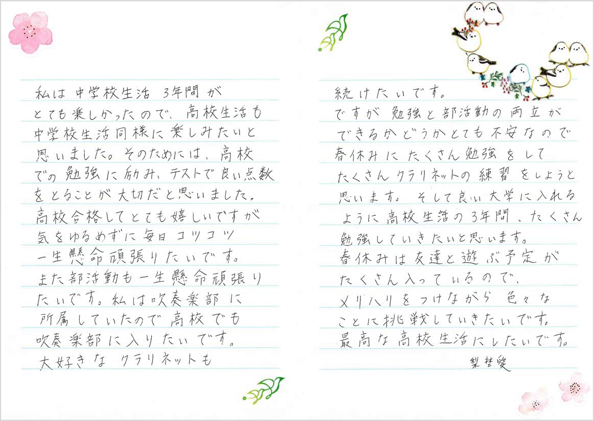 私は中学校生活3年間が
とても楽しかったので、高校生活も
中学校生活同様に楽しみたいと
思いました。そのためには、高校
での勉強に励み、テストで良い点数
をとることが大切だと思いました。
高校合格してとても嬉しいですが
気をゆるめずに毎日コツコツ
一生懸命頑張りたいです。
また部活動も一生懸命頑張り
たいです。私は吹奏楽部に
所属していたので高校でも
吹奏楽部に入りたいです。
大好きなクラリネットも
続けたいです。
ですが勉強と部活動の両立が
できるかどうかとても不安なので
春休みにたくさん勉強をして
たくさんクラリネットの練習をしようと
思います。そして良い大学に入れる
ように高校生活の3年間、たくさん
勉強していきたいと思います。
春休みは友達と遊ぶ予定が
たくさん入っているので、
メリハリをつけながら色々な
ことに挑戦していきたいです。
最高な高校生活にしたいです。